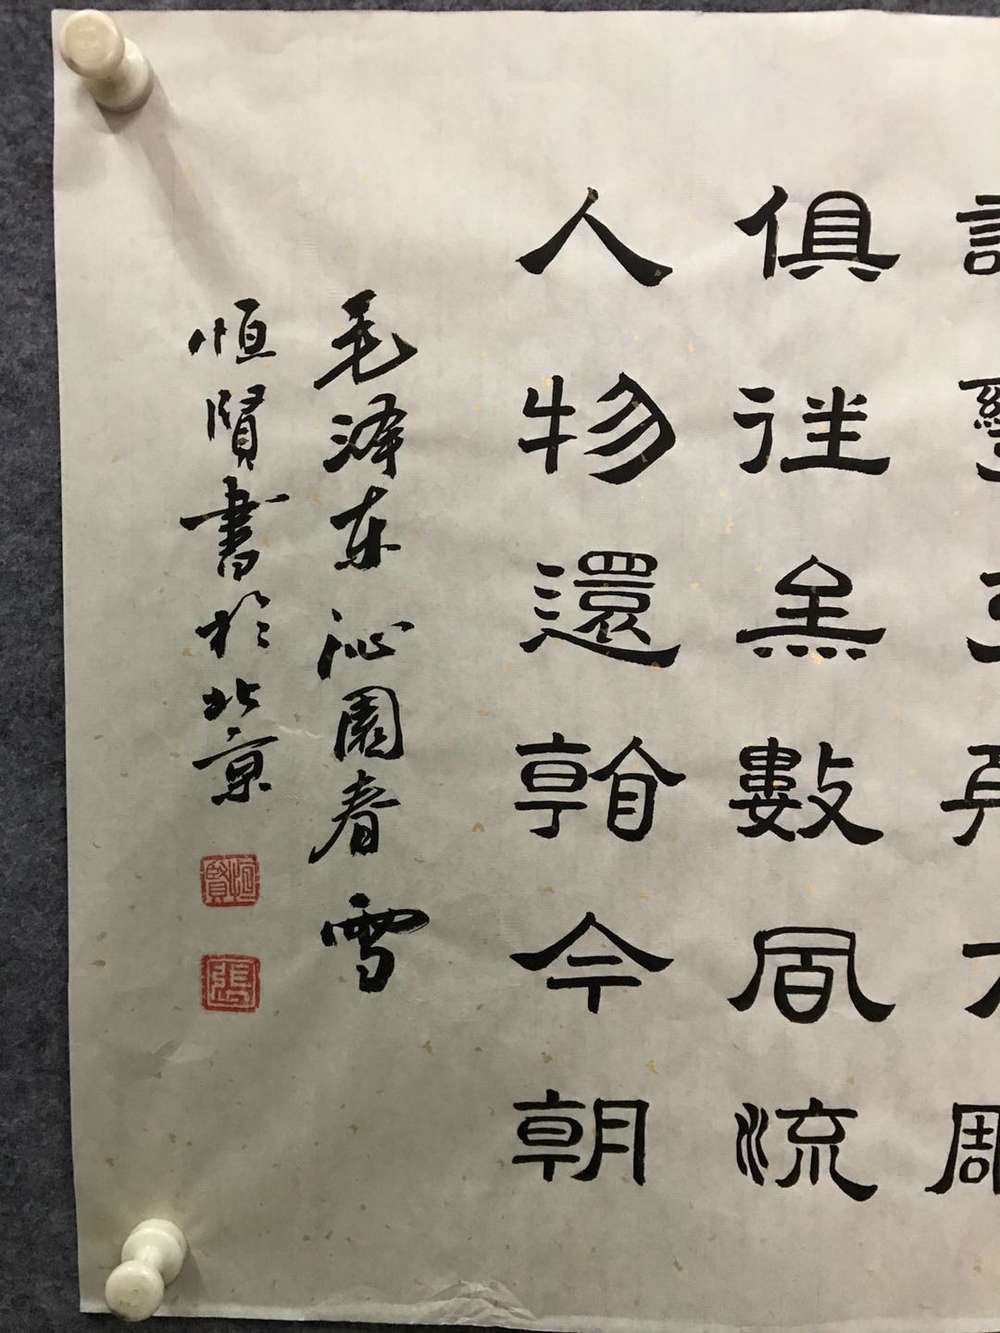 俱往矣數風流
人物還看今朝
毛泽东 沁園春 雪
恒賢書於北京
恒賢
張